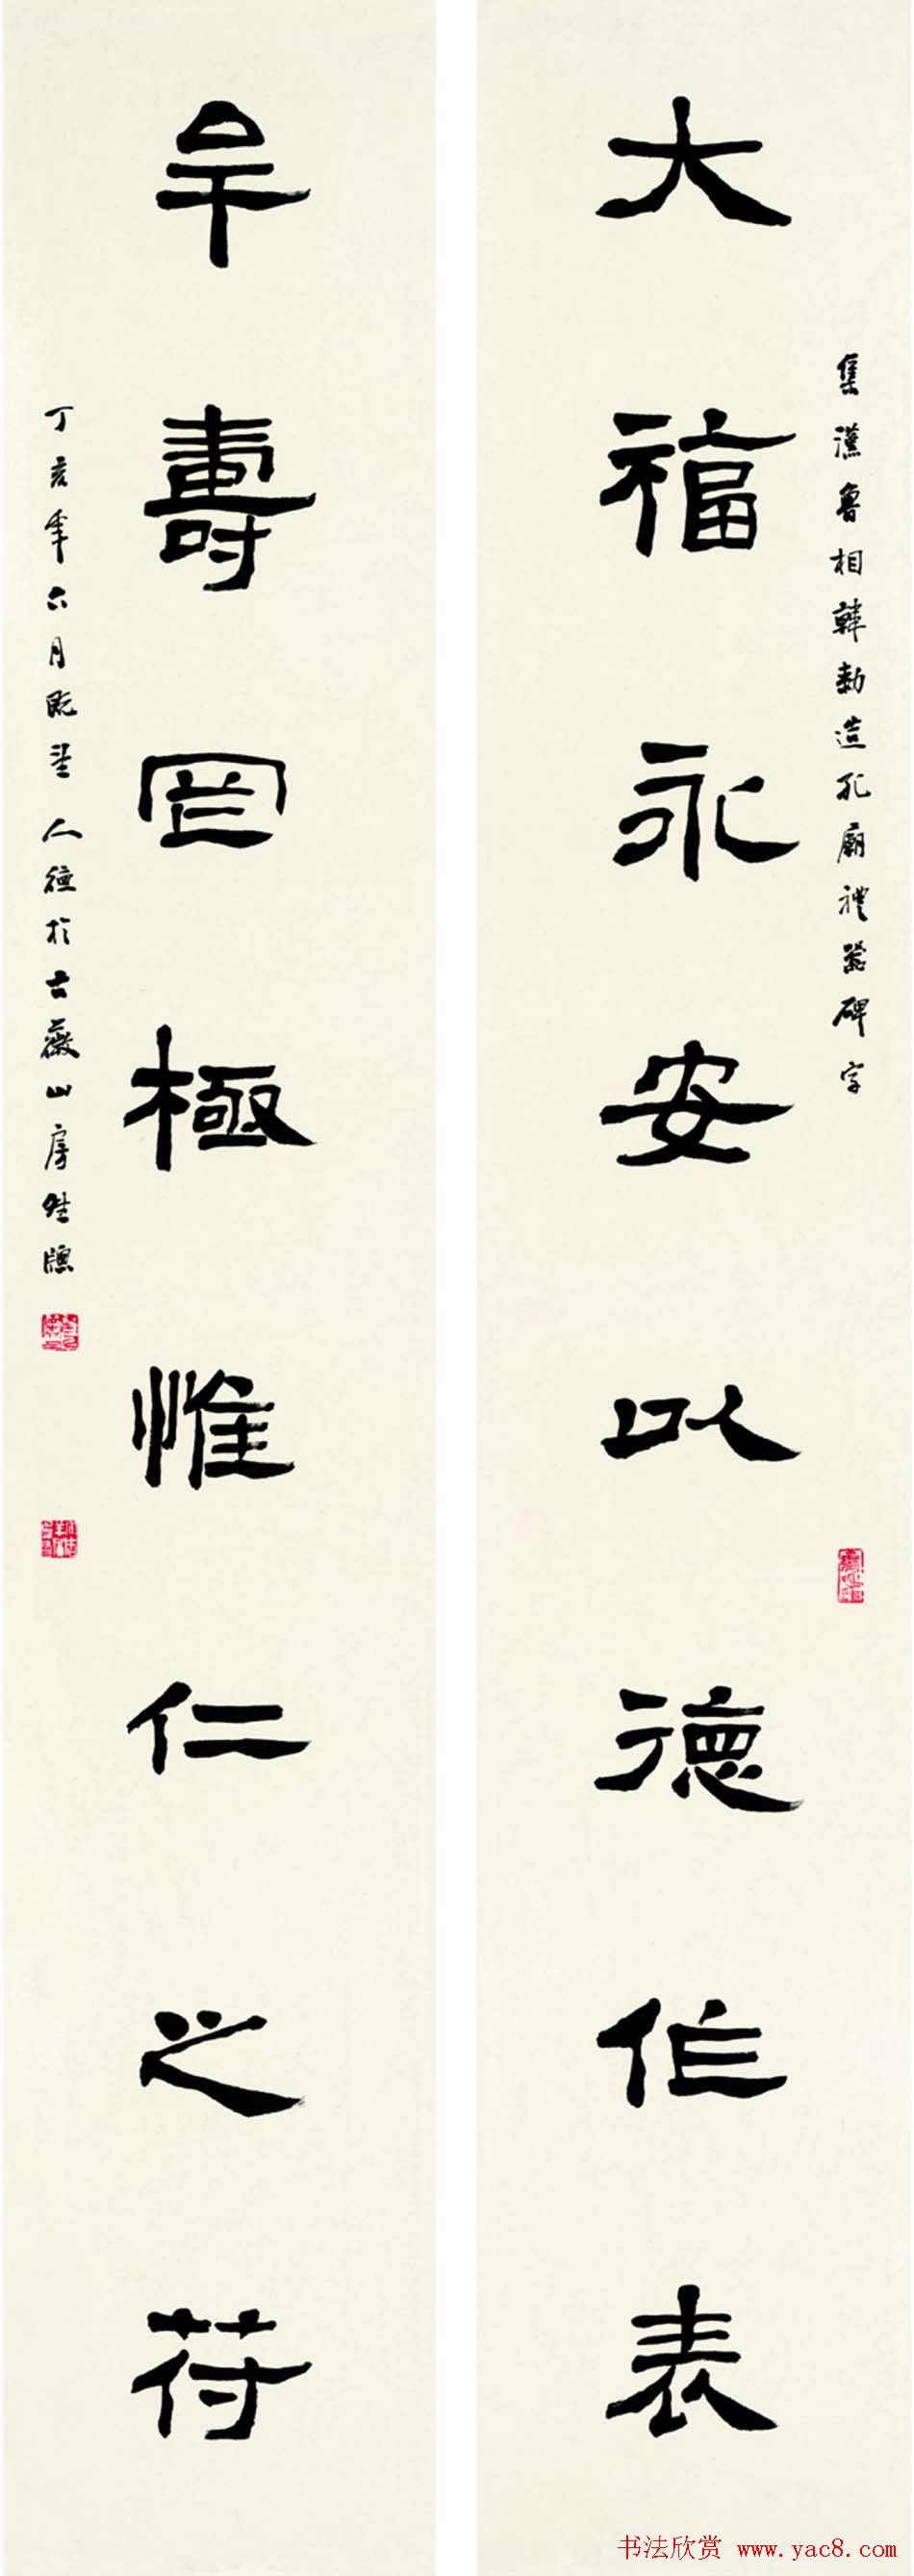 大福永安以德作表
集漢魯相韓勑造孔廟禮器碑字
牟壽罔極惟仁之苻
丁亥年六月既望人德於古薇山房
书法欣赏 www.yac8.com